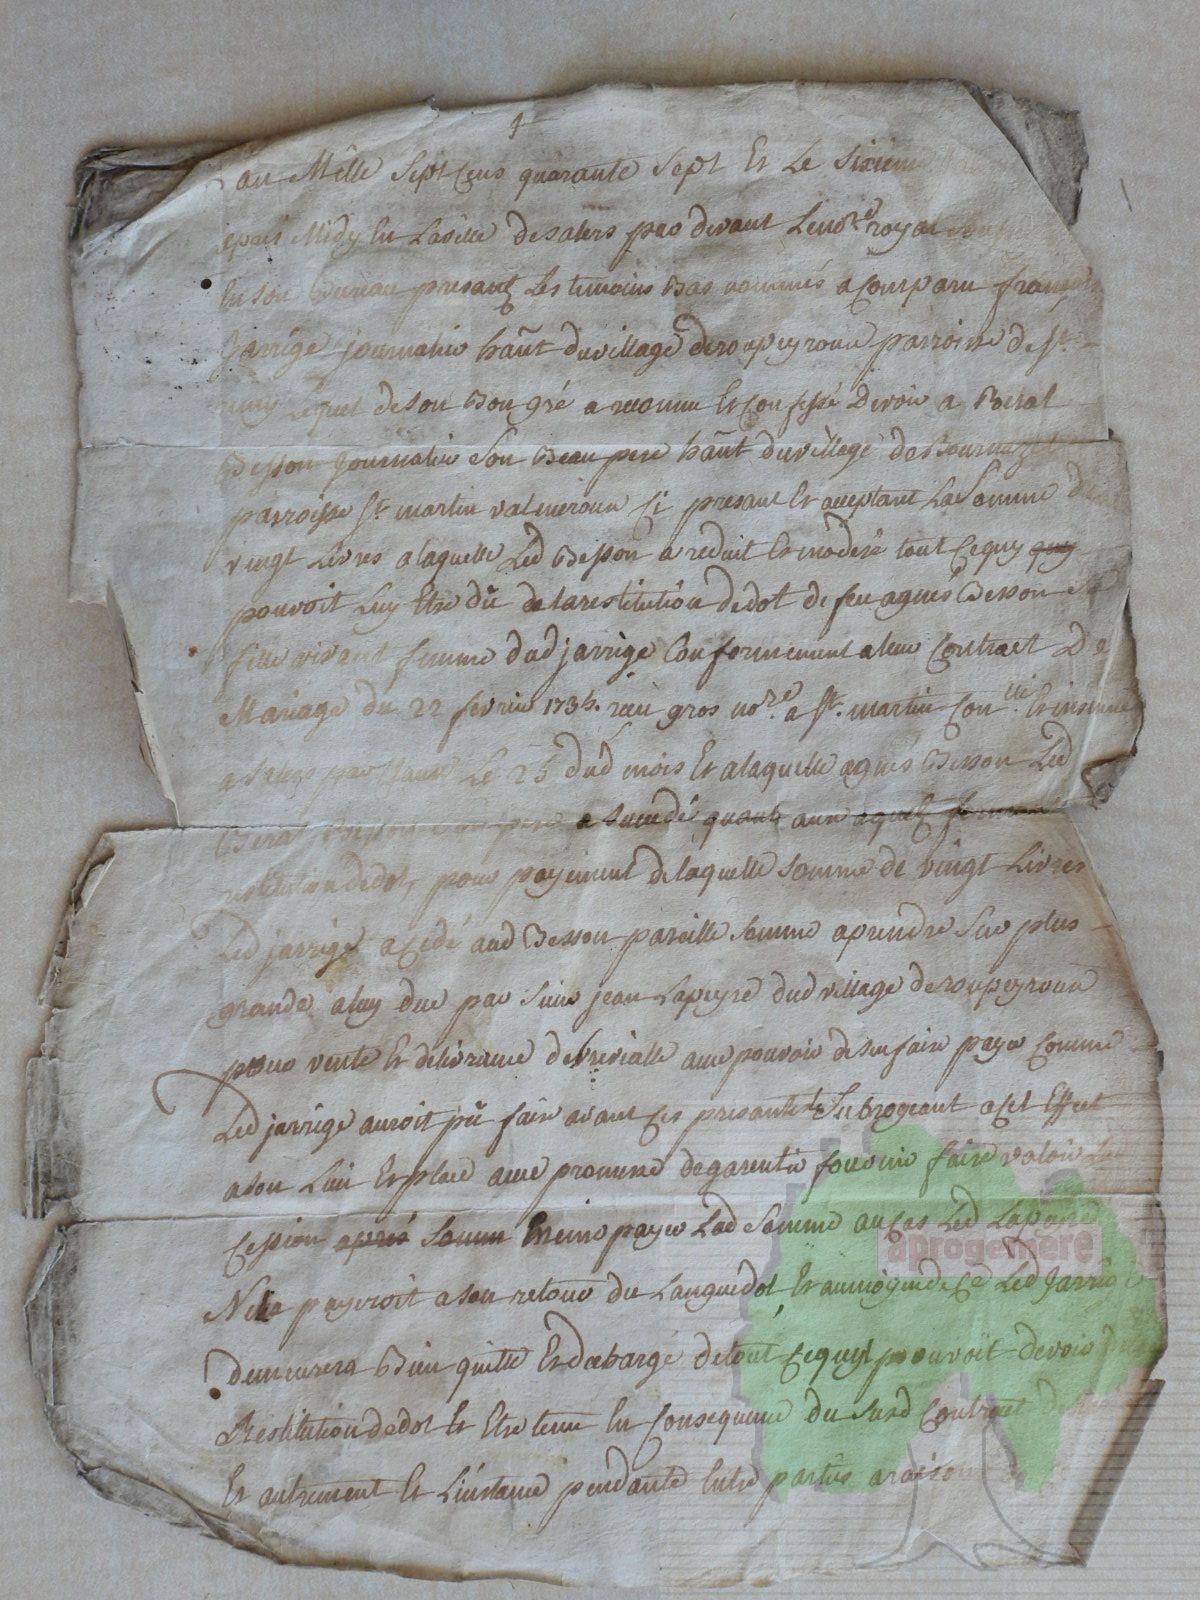 an Mille Sept Cens quarante Sept Et Le Sixieme
apres Midy En Laville desalers par devant Lenore royal
En son Bureau presants Les temoins Bas nommés a Comparu françois
Jarrige journalier hãnt duvillage deroupeyroux parroisse de St
remy Lequel deson Bon gré a reconnu Et Confessé Devoir a Beral
Besson Journalier Son Beau pere hãnt du village de Bournaz
parroisse St martin valmeroux Ci presant Et acceptant La Somme de
vingt Livres a laquelle Led Besson a reduit Et modéré tout Cequy quy
pouvoit Luy Etre dû de la restitution dedot de feu agnes Besson Sa
fille vivant femme dud jarrige Conformement a leur Contract De
Mariage du 22 fevrier 173 reçu gros nore a St martin Conllé Et insinué
a Salers par Le 25 dud mois Et alaquelle agnes Besson Led
Beral Besson Son pere a Succedé quant aux
restitution dedot, pour payement delaquelle somme de vingt Livres
Led jarrige a Cedé aud Besson pareille Somme aprendre Sur plus
grande a luy due par Sieur jean Lapeyre dud village deroupeyroux
pour vente Et delivrance de avec pouvoir desen faire payer Comme
Led jarrige auroit pû faire avant Ces presantes Le Subrogeant a Cet Effect
a son Lieu Et place avec promesse degarentir fournir faire valoir Lad
Cession apres Somm payer Lad Somme au Cas Led Lapeyre
Ne La payeroit a son retour du Languedoc, Et aumoyen de Ce Led Jarrige
demeurera Bien quitte Et décharge detout Cequyl pouvoit devoir
Restitution dedot Et Etre tenu En Consequence du Susd Contract de
Et autrement Et Linstance pendante Entre parties araison de
aprogemere